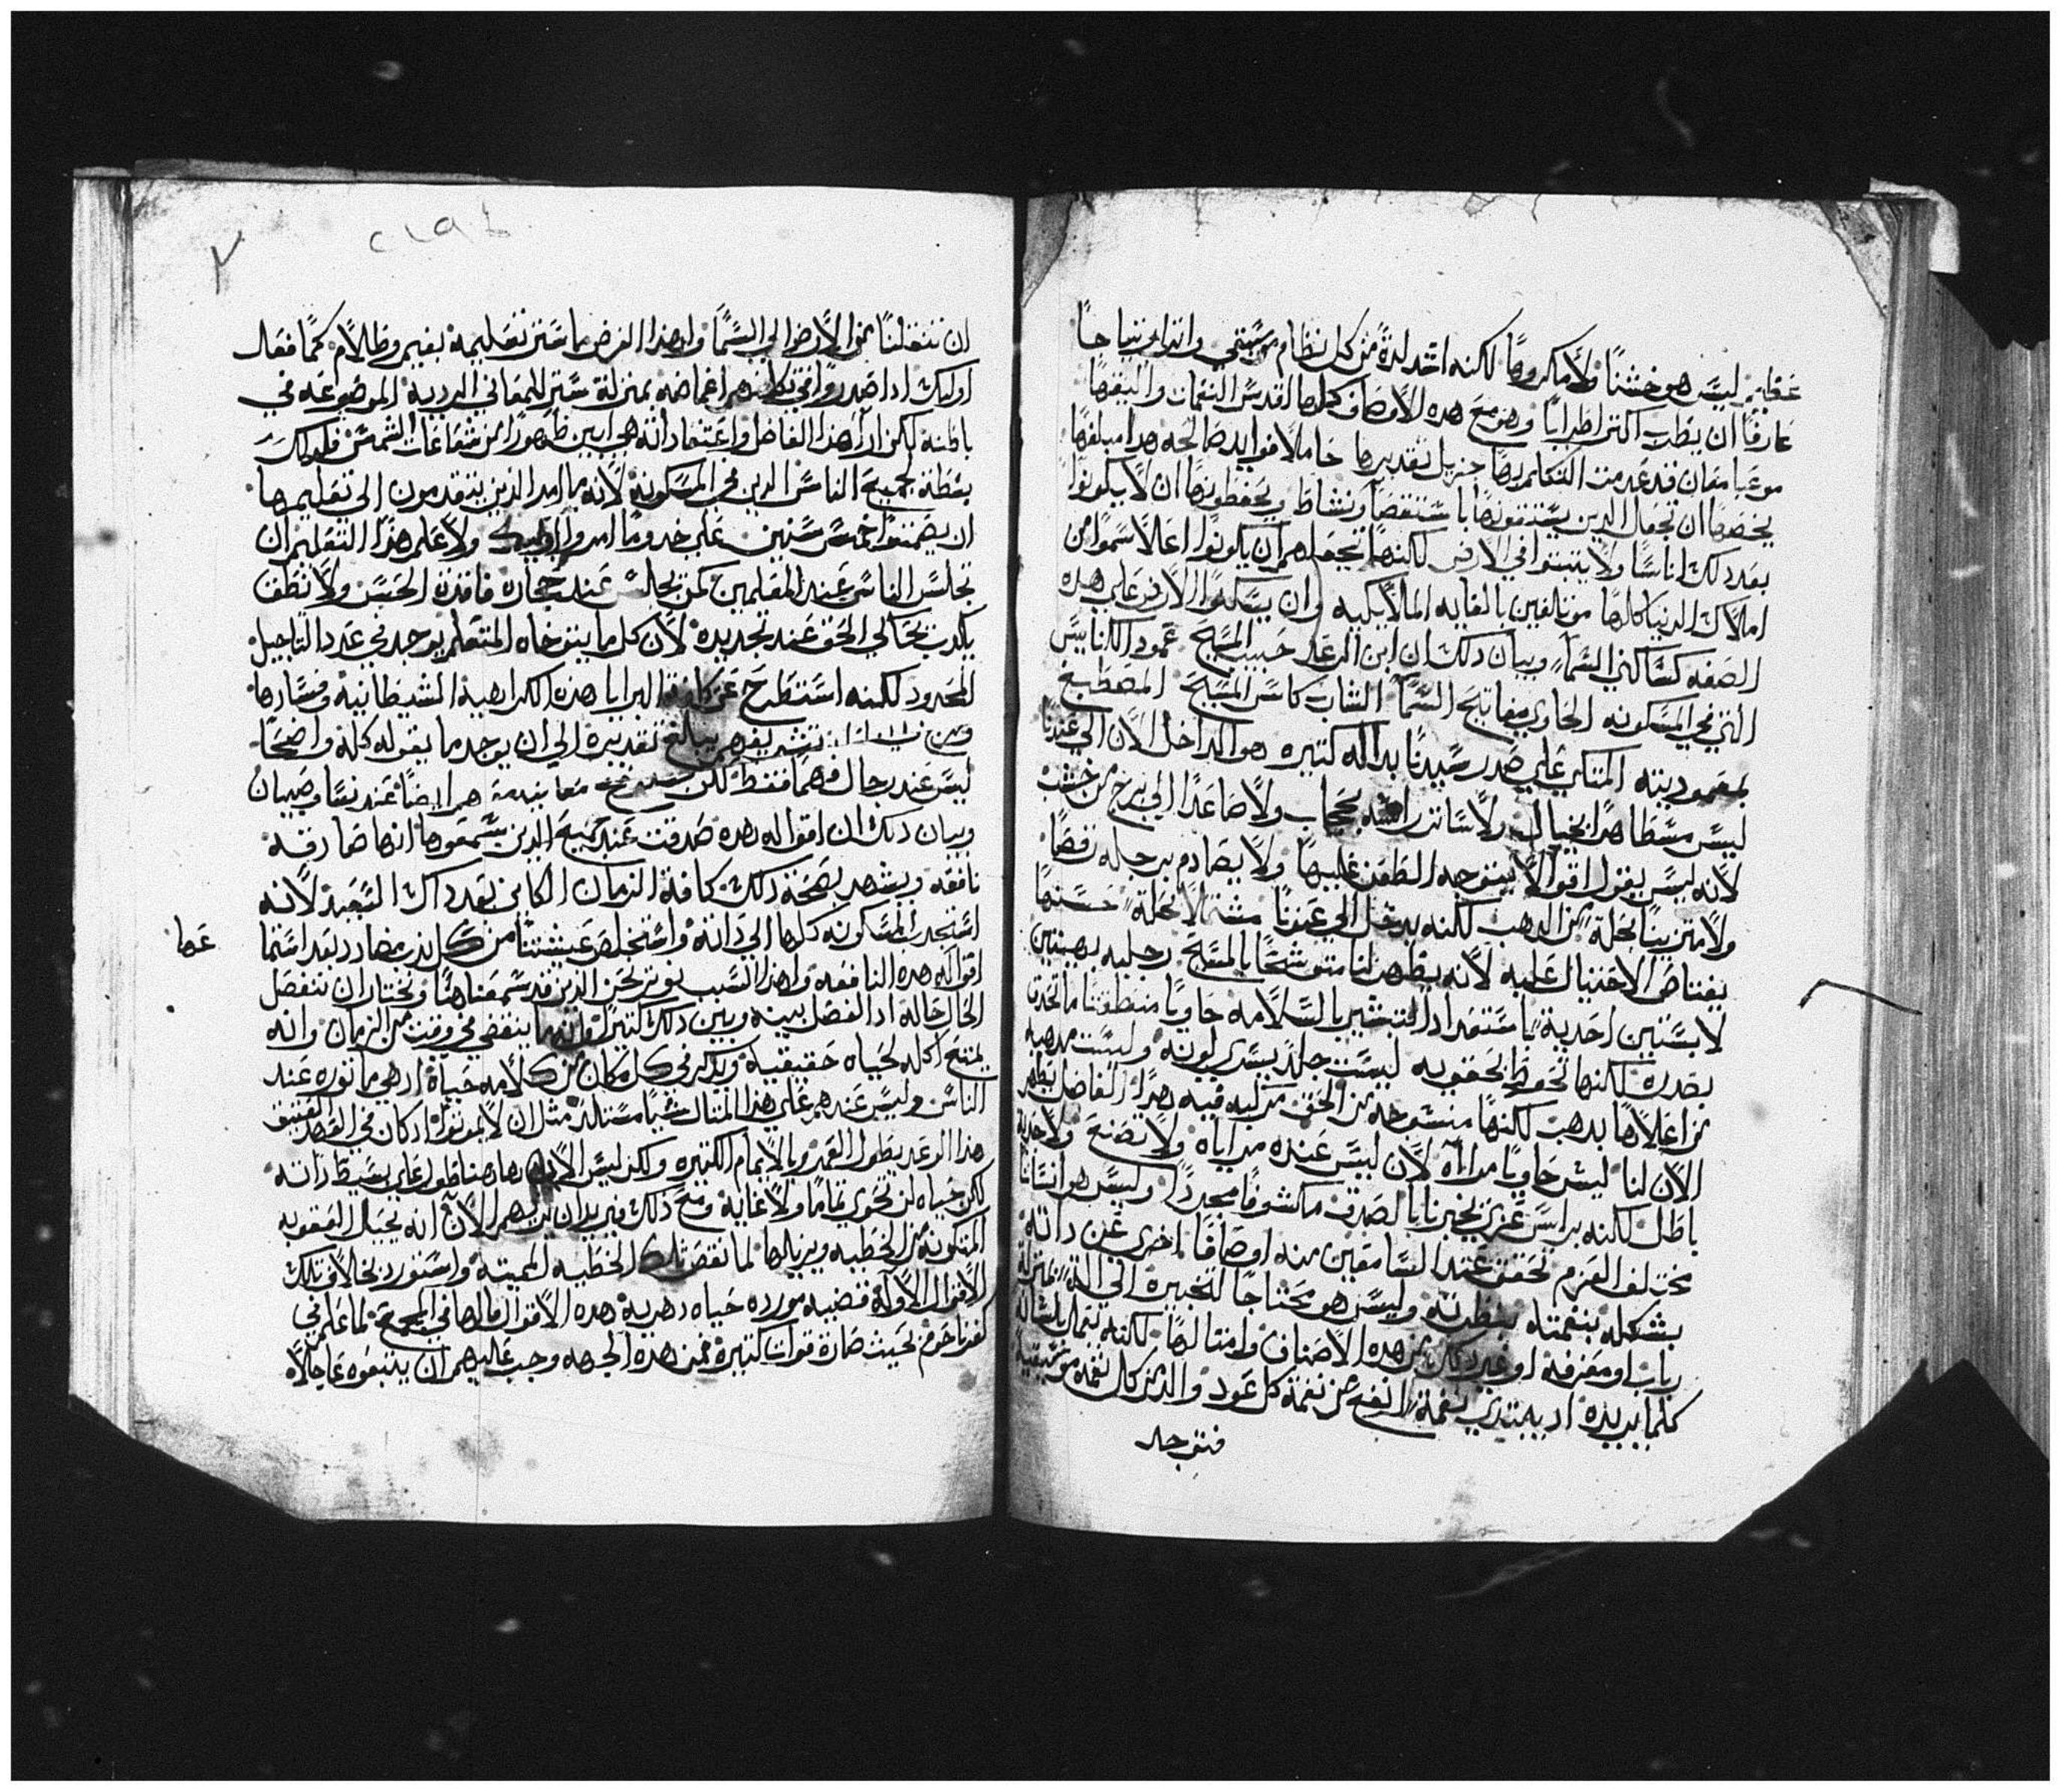 عظيم ليس هو خشنًا ولا مكروهًا لكنه اشد لذة من كل نظام موسيقي واتراو نتياجًا
عارفًا ان يطرب اكتر اطرابًا وهو مع هده الاوصاف كلها اقدس النغمات واليقها
موعبا معان قد عدمت التكلم بها جزيل تقديرها حاملا فوايد صالحه هدا مبلغها
يخصها ان تجعل الدين يستتقونها باستقصا ونشاط ويحفظونها ان لا يكونوا
بعد دلك اناسًا ولا يتبتوا في الارض لكنها تجعلهم ان يكونوا اعلا سموا من
املاك الدنيا كلها موتلفين بالغايه الملايكيه وان يسكنوا الارض علي هده
الصفه كساكني السما وبيان دلك ان ابن الرعد حبيب المسيح عمود الكنايس
التي في المسكونه الحاوي مفاتيح السما الشارب كاس المسيح المصطبغ
بمعموديته المتكي علي صدر سيدنا بداله كتيره هو الداخل الان الي عندنا
ليس مسطا هدا بخيال ولا ساتر راسه بحجاب ولا صاعدًا الي برج من خشب
لانه ليس يقول اقوالا يتوجه الطعن عليها ولا يصادم برجله رقصًا
ولا متزينا بحلة من الدهب لكنه يدخل الي عندنا مشتملا بحلة حسنها
يعتاص الاحتيال عليه لانه يظهر لنا متوشحًا بالمسيح رجليه بهيتين
لابستين احدية باستعداد التبشير بالسلامه حاويًا منطقتنا ما تحدق
بصدره لكنها تحوط بحقويه ليست جلد بسدي لونه وليست مدهبه
من اعلاها بدهب لكنها منسوجه من الحق مركبه فيه هدا الفاضل يظهر
الان لنا ليس حاويًا مراآه لان ليس عنده مراياه ولا تصنع ولا خديعة
باطل لكنه براس عري يخبرنا بالصدق مكشوفًا مجردًا وليس هو انسانًا
مختلف العزم تحقق عند السامعين منه اوصافًا اخري عن داته
بشكله بنغمته بنظرته وليس هو محتاجًا لتخبيره الي الة بمنزلة
رباب او معزفه او غير دلك من هده الاصناف وامتالها لكنه يعمل بلسانه
كلما يريده اد يبتدي بنغمة انفع من نغمة كل عود والد من كل نغمة موسيقية
فنفرجل
ان تنقلنا من الارض الي السما ولهدا الغرض ما ستر تعليمه بغيم وظلام كما فعل
اوليك ادا ضمروا في كلامهم اغماضه بمنزلة ستر للمعاني الردية الموضوعه في
باطنه لكن ارا هدا الفاضل واعتقاداته هي ابين ظهورًا من شعاعات الشمس فلدلك
بسطة لجميع الناس الدين في المسكونه لانه ما امر الدين يتقدمون الي تعليمه
ان يصمتوا خمس سنين علي حدو ما امروا اوليك ولا علم هدا التعليم ان
تجلس الناس عند المعلمين كمن يجلس عند حجارة فاقدة الحس ولا نطق
بكدب بحتالي الحق عند تجديده لان كل ما يتوخاه المتعلم يوجد في عدد التاجيل
المحدود لكنه استطرح عن كافة البرايا هده الكراهية الشيطانيه وفسادها
ومزج تشريفهم ببالغ تقديره الي ان يوجد ما يقوله كله واضحًا
ليس عند رجال فهما فقط لكن معاينة هم ايضًا عند نسا وصبيان
وبيان دلك ان اقواله هده صدقت عند جميع الدين سمعوها انها صادقه
نافعه ويشهد بصحة دلك كافة الزمان الكاين بعد داك السعيد لانه
استجدب المسكونه كلها الي داته واستخلص عيشتنا من كل لدن مضاد بعد استماعها
عها
اقواله هده النافعه ولهدا السبب نوتر نحن الدين قد سمعناها ونختار ان تنفصل
الحال حاله ادا لفصل بينه وبين دلك كتيرًا ما ينقضي في وقت من الزمان وانه
يمنح اكله لحياه حقيقية ويدكر في كل مكان من كلامه حياة ادهي ماتوره عند
الناس وليس عندهم علي هدا المتال شيا مستلد متل ان لا يموتوا ادكان في العهد العتيق
هدا الوعد بطول العمر وبالايام الكتيره ولكن ليس الامر هاهنا طول علي بسيط داته
لكن حياه لن تحوي تماما ولا غايه ومع دلك فيريد ان يريهم الان انه يحل العقوبه
المتكونة من الخطيه ويزيلها لما نقض تلك الخطيه المميته واستورد بخلاف تلك
الاقوال الاوله قضيه مورده حياه دهرية هده الاقوال قالها في المجمع لما علم في
كفرناحوم بحيث صارة قوات كتيرة فمن هده الجهه وجب عليهم ان يتبعوه عاجلا